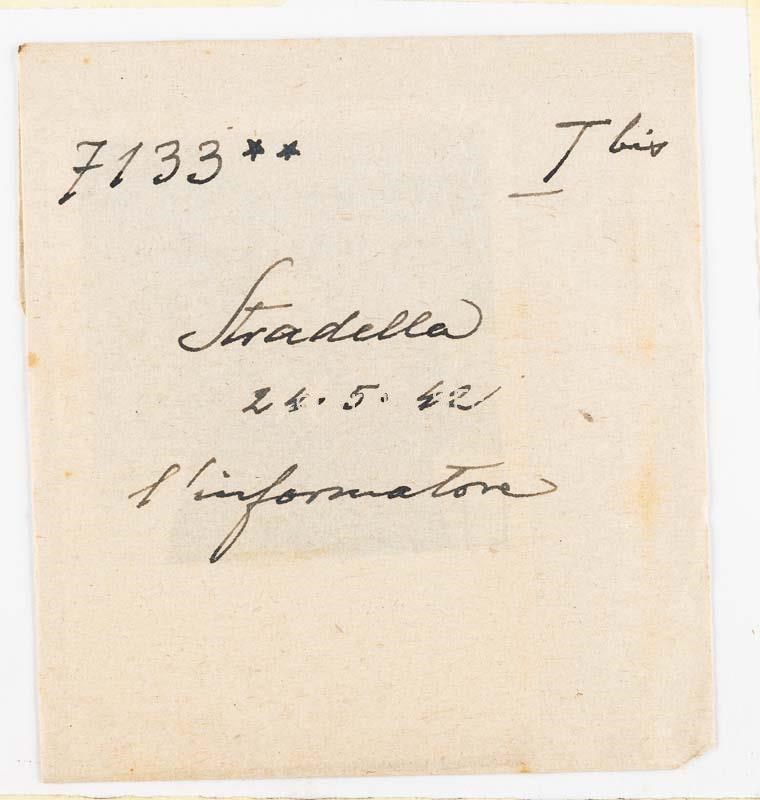 7133** I bis
Stradella
24.5.42
l'informatore